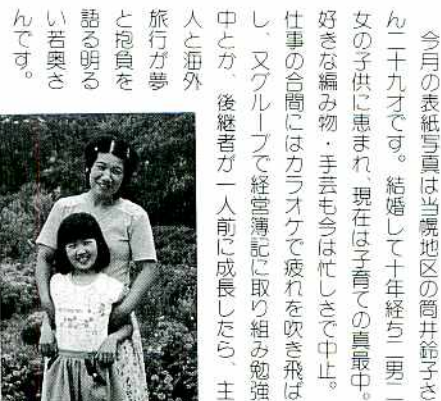 今月の表紙写真は当幌地区の筒井鈴子さ
ん二十九才です。結婚して十年経ち二男二
女の子供に恵まれ、現在は子育ての真最中。
好きな編み物・手芸も今は忙しさで中止。
仕事の合間にはカラオケで疲れを吹き飛ば
し、又グループで経営簿記に取り組み勉強
中とか、後継者が一人前に成長したら、主
人と海外
旅行が夢
と抱負を
語る明る
い若奥さ
んです。